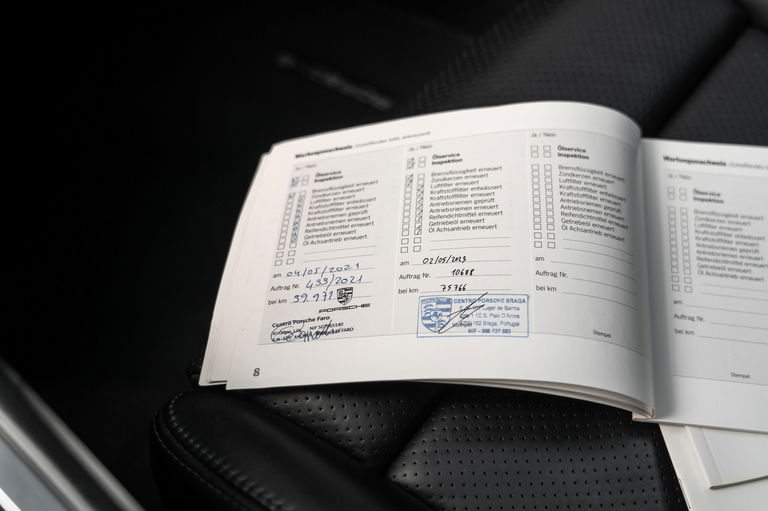 Wartungsnachweis (Zutreffendes bitte ankreuzen)
Ja / Nein
Ölservice
Inspektion
Bremsflüssigkeit erneuert
Zündkerzen erneuert
Luftfilter erneuert
Kraftstofffilter entwässert
Kraftstofffilter erneuert
Antriebsriemen geprüft
Antriebsriemen erneuert
Reifendichtmittel erneuert
Getriebeöl erneuert
Öl Achsantrieb erneuert
am 04/05/2021
Auftrag Nr. 433/2021
bei km 39.971
PORSCHE
Centro Porsche Faro
8
Ja / Nein
Ölservice
Inspektion
Bremsflüssigkeit erneuert
Zündkerzen erneuert
Luftfilter erneuert
Kraftstofffilter entwässert
Kraftstofffilter erneuert
Antriebsriemen geprüft
Antriebsriemen erneuert
Reifendichtmittel erneuert
Getriebeöl erneuert
Öl Achsantrieb erneuert
am 02/05/2023
Auftrag Nr. 10688
bei km 75766
CENTRO PORSCHE BRAGA
Braga, Portugal
Ja / Nein
Ölservice
Inspektion
Bremsflüssigkeit erneuert
Zündkerzen erneuert
Luftfilter erneuert
Kraftstofffilter entwässert
Kraftstofffilter erneuert
Antriebsriemen geprüft
Antriebsriemen erneuert
Reifendichtmittel erneuert
Getriebeöl erneuert
Öl Achsantrieb erneuert
am
Auftrag Nr.
bei km
Stempel
Wartungsnachweis (Zutreffendes bitte
Ja / Nein
Ölservice
Inspektion
Bremsflüssigkeit erneuert
Zündkerzen erneuert
Luftfilter erneuert
Kraftstofffilter entwässert
Kraftstofffilter erneuert
Antriebsriemen geprüft
Antriebsriemen erneuert
Reifendichtmittel erneuert
Getriebeöl erneuert
Öl Achsantrieb erneuert
am
Auftrag Nr.
bei km
Stempel